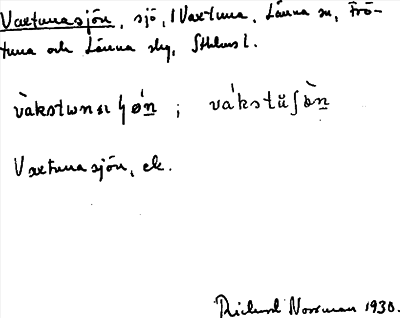 Vaxtunasjön, sjö, i Vaxtuna, Länna sn, Frö-
tuna och Länna slg, Sthlms l.
våkstɯnaɩ ɧǿn ; vákstŭʃòn
Vaxtunasjön, ek.
Richard Norrman 1930.